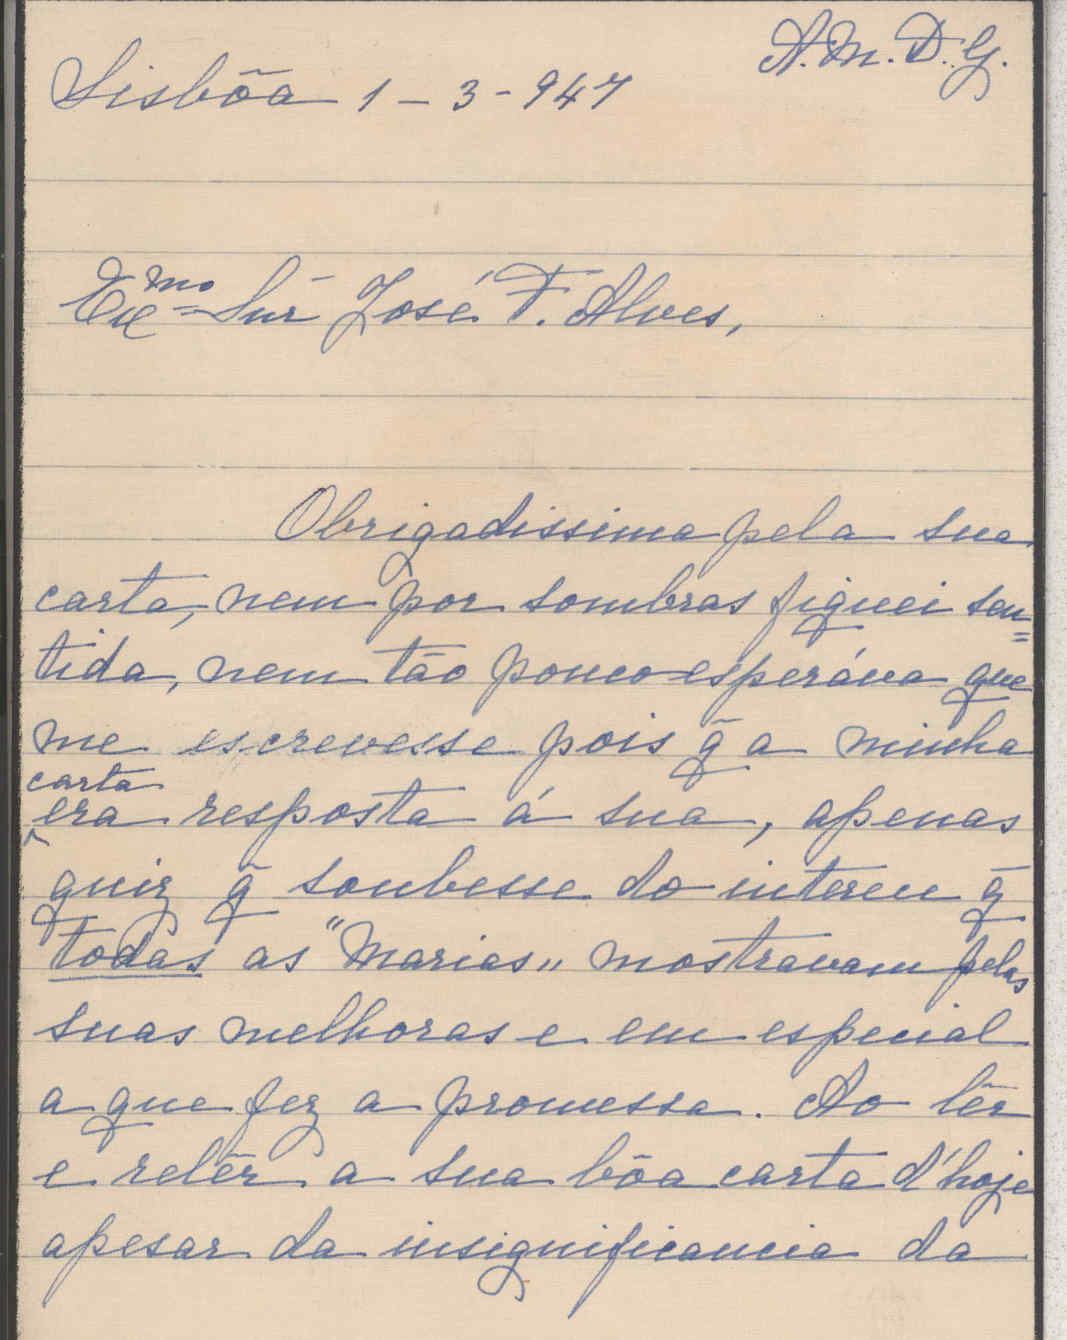 A.M.D.G.
Lisbôa 1-3-947
Exmo Snr José F. Alves,
Obrigadissima pela sua
carta, nem por sombras fiquei sen=
tida, nem tão pouco esperáva que
me escrevesse pois q̃ a minha
carta
era resposta á sua, apenas
quiz q̃ soubesse do interesse q̃
todas as "Marias„ mostravam pelas
suas melhoras e em especial
a que fez a promessa. Ao lêr
e relêr a sua bôa carta d'hoje
apesar da insignificancia da